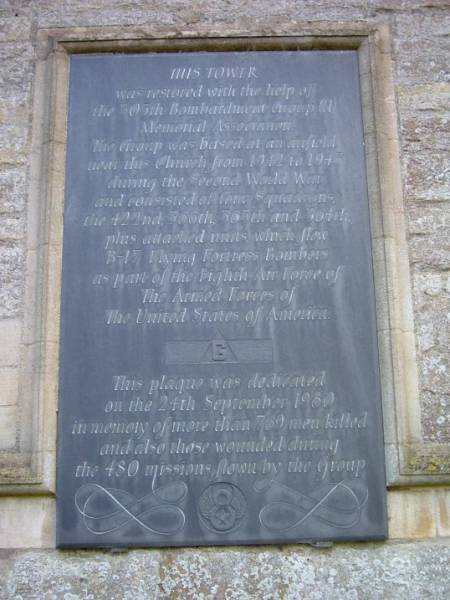 THIS TOWER
was restored with the help of
the 305th Bombardment Group (H)
Memorial Association.
The Group was based at an airfield
near this Church from 1942 to 1945
during the Second World War
and consisted of four Squadrons,
the 422nd, 366th, 365th and 364th,
plus attached units, which flew
B-17 Flying Fortress Bombers
as part of the Eighth Air Force of
The Armed Forces of
The United States of America.
G
This plaque was dedicated
on the 24th September 1980
in memory of more than 769 men killed
and also those wounded during
the 480 missions flown by the Group